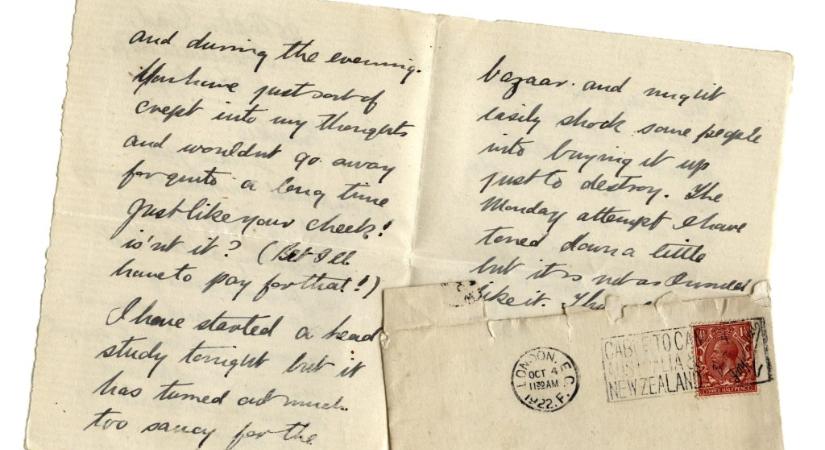 and during the evening.
You have just sort of
crept into my thoughts
and wouldnt go away
for quite a long time
Just like your cheek!
is'nt it? (Bet I'll
have to pay for that!)
I have started a head
study tonight but it
has turned out much
too saucy for the
bazaar. and might
easily shock some people
into buying it up
just to destroy. The
Monday attempt I have
toned down a little
but it is not as I would
like it.
LONDON, E.C.
OCT 4
11 30 AM
1922. F.
CABLE TO CA
AUSTRALIA &
NEW ZEALAND